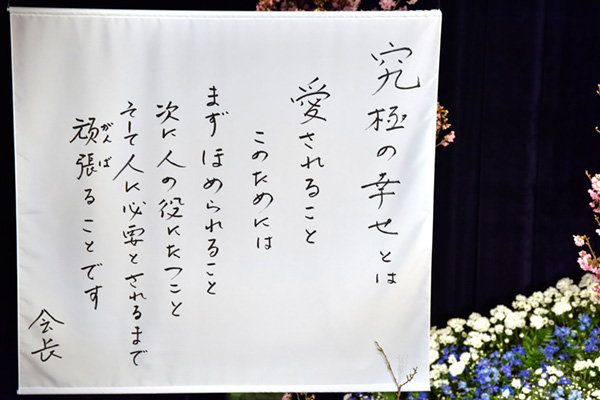 究極の幸せとは
愛されること
このためには
まずほめられること
次に人の役にたつこと
そして人に必要とされるまで
頑張ることです
がんば
会長